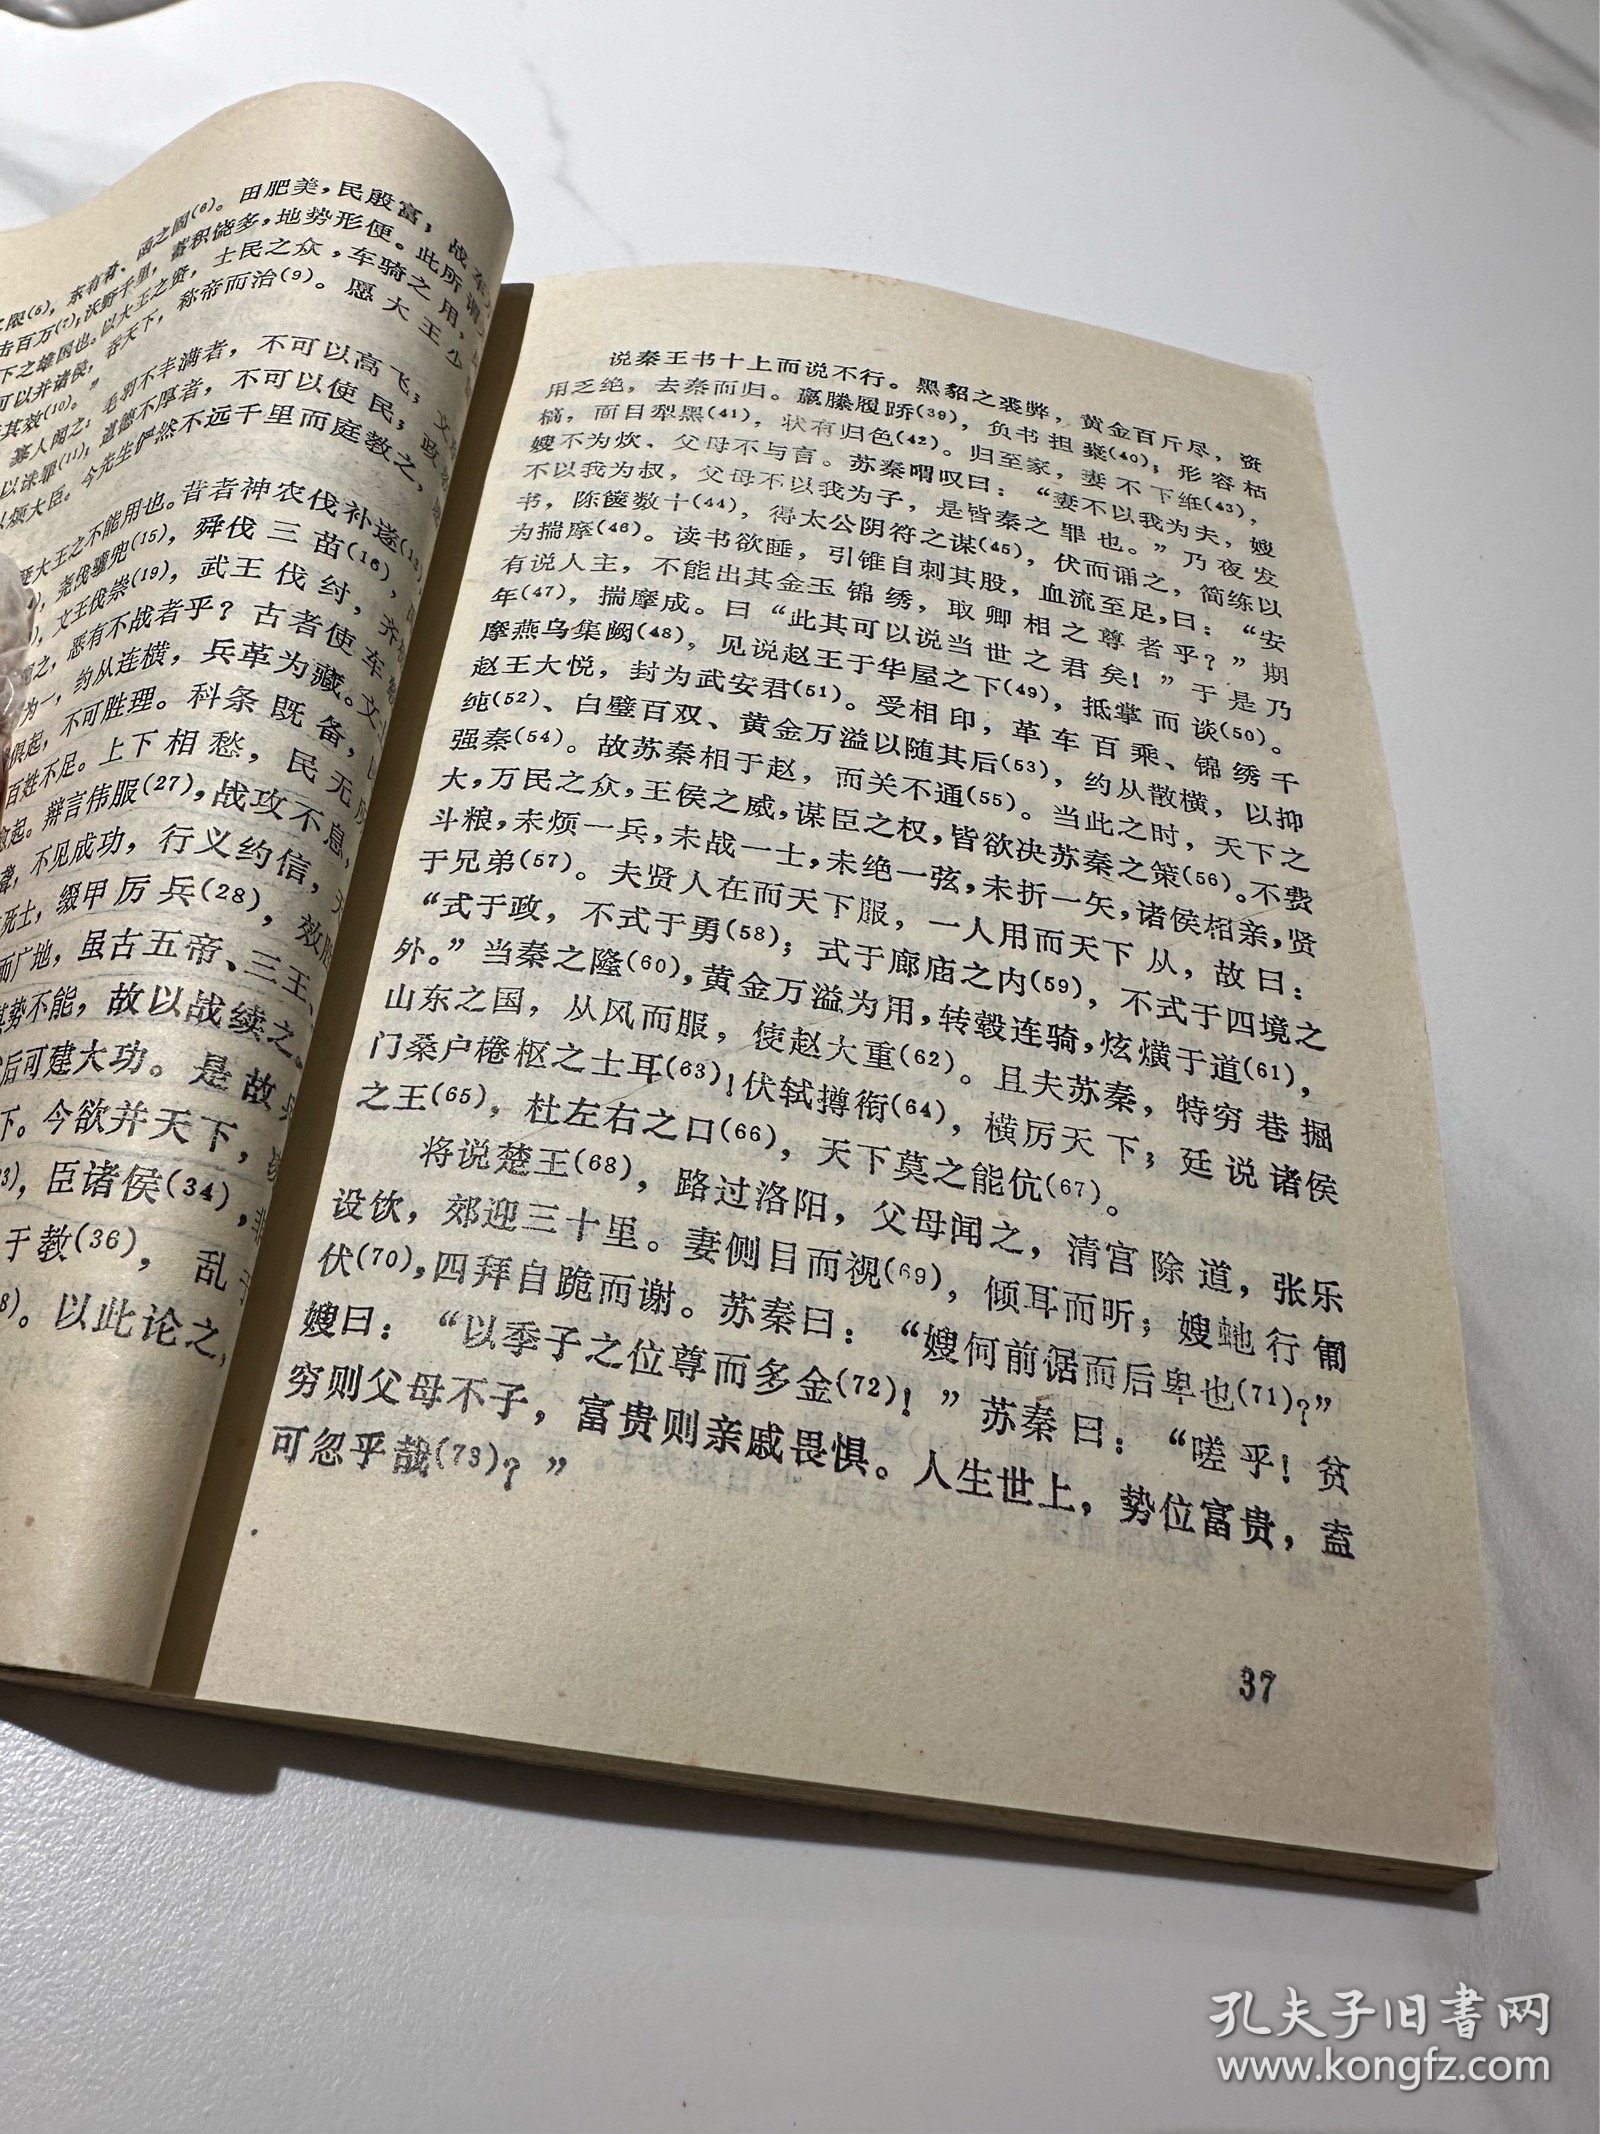 函之固(6)。田肥美，民殷富，战车
击百万(7)；沃野千里，蓄积饶多，地势形便。此所谓
下之雄国也。以大王之贤，士民之众，车骑之用，
可以并诸侯，吞天下，称帝而治(9)。愿大王少
其效(10)。”
寡人闻之：毛羽不丰满者，不可以高飞；文
以诛罚(11)；道德不厚者，不可以使民；政
以烦大臣。今先生俨然不远千里而庭教之，
大王之不能用也。昔者神农伐补遂(13)
尧伐驩兜(15)，舜伐三苗(16)，
文王伐崇(19)，武王伐纣，齐
之，恶有不战者乎？古者使车
为一，约从连横，兵革为藏。文
俱起，不可胜理。科条既备，
百姓不足。上下相愁，民无所
愈起。辩言伟服(27)，战攻不息，
聋，不见成功，行义约信，天
死士，缀甲厉兵(28)，效胜
而广地，虽古五帝、三王、
其势不能，故以战续之。
后可建大功。是故兵
下。今欲并天下，
3)，臣诸侯(34)，非
于教(36)，乱
8)。以此论之，
说秦王书十上而说不行。黑貂之裘弊，黄金百斤尽，资
用乏绝，去秦而归。羸縢履蹻(39)，负书担橐(40)；形容枯
槁，面目犁黑(41)，状有归色(42)。归至家，妻不下维(43)，
嫂不为炊，父母不与言。苏秦喟叹曰：“妻不以我为夫，嫂
不以我为叔，父母不以我为子，是皆秦之罪也。”乃夜发
书，陈箧数十(44)，得太公阴符之谋(45)，伏而诵之，简练以
为揣摩(46)。读书欲睡，引锥自刺其股，血流至足，曰：“安
有说人主，不能出其金玉锦绣，取卿相之尊者乎？”期
年(47)，揣摩成。曰“此其可以说当世之君矣！”于是乃
摩燕乌集阙(48)，见说赵王于华屋之下(49)，抵掌而谈(50)。
赵王大悦，封为武安君(51)。受相印，革车百乘、锦绣千
纯(52)、白璧百双、黄金万溢以随其后(53)，约从散横，以抑
强秦(54)。故苏秦相于赵，而关不通(55)。当此之时，天下之
大，万民之众，王侯之威，谋臣之权，皆欲决苏秦之策(56)。不费
斗粮，未烦一兵，未战一士，未绝一弦，未折一矢，诸侯相亲，贤
于兄弟(57)。夫贤人在而天下服，一人用而天下从，故曰：
“式于政，不式于勇(58)；式于廊庙之内(59)，不式于四境之
外。”当秦之隆(60)，黄金万溢为用，转毂连骑，炫熿于道(61)，
山东之国，从风而服，使赵大重(62)。且夫苏秦，特穷巷掘
门桑户棬枢之士耳(63)！伏轼撙衔(64)，横历天下；廷说诸侯
之王(65)，杜左右之口(66)，天下莫之能伉(67)。
将说楚王(68)，路过洛阳，父母闻之，清宫除道，张乐
设饮，郊迎三十里。妻侧目而视(69)，倾耳而听；嫂虵行匍
伏(70)，四拜自跪而谢。苏秦曰：“嫂何前倨而后卑也(71)？”
嫂曰：“以季子之位尊而多金(72)！”苏秦曰：“嗟乎！贫
穷则父母不子，富贵则亲戚畏惧。人生世上，势位富贵，盍
可忽乎哉(73)？”
37
孔夫子旧书网
www.kongfz.com